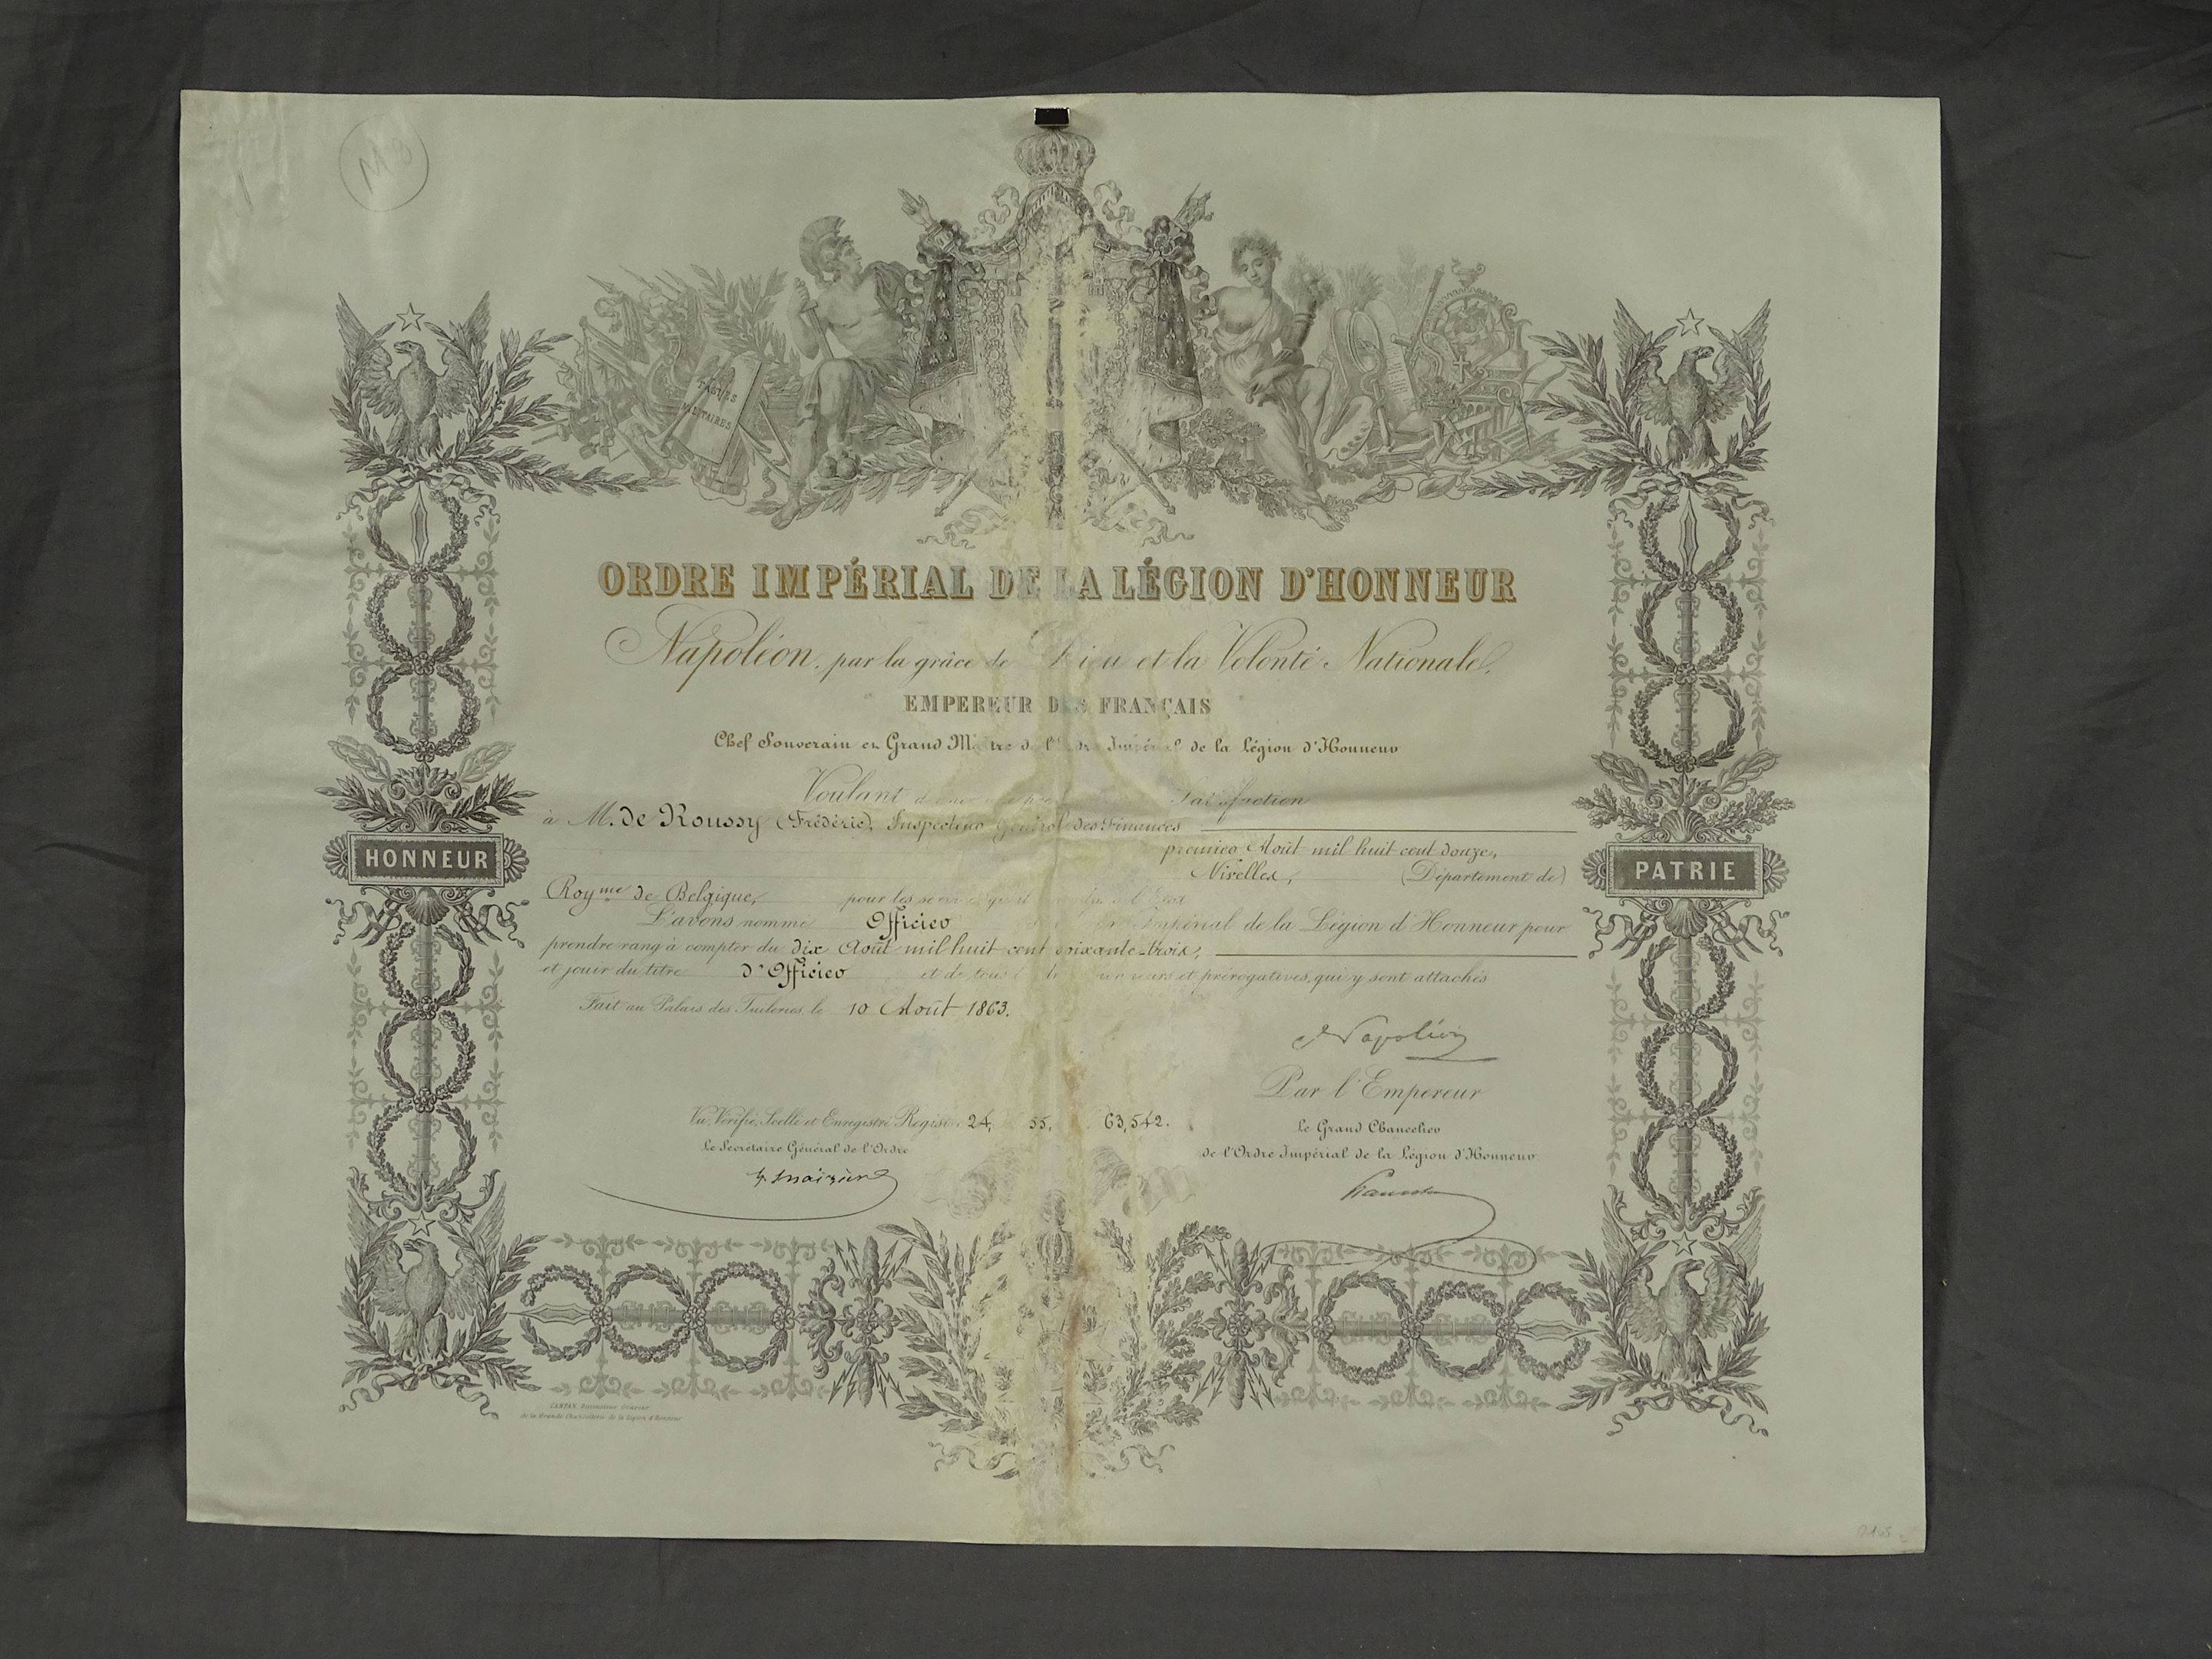 M 3
FASTES
MILITAIRES
ORDRE IMPÉRIAL DE LA LÉGION D'HONNEUR
Napoléon, par la grâce de Dieu et la Volonté Nationale,
EMPEREUR DES FRANÇAIS
Chef Souverain et Grand Maître de l'Ordre Impérial de la Légion d'Honneur
Voulant satisfaction
à M. de Roussy (Frédéric), Inspecteur Général des Finances
premier Août mil huit cent douze,
Nivelles, (Département de)
Roy.me de Belgique, pour les services qu'il l'Etat
L'avons nommé Officier Impérial de la Légion d'Honneur pour
prendre rang à compter du dix Août mil huit cent soixante-trois,
et jouir du titre d'Officier et de tous honneurs et prérogatives, qui y sont attachés
Fait au Palais des Tuileries, le 10 Août 1863.
Napoléon
Par l'Empereur
Vu, Vérifié, Scellé et Enregistré Registre 24, 55, 63,542.
Le Grand Chancelier
Le Secrétaire Général de l'Ordre
de l'Ordre Impérial de la Légion d'Honneur
HONNEUR
PATRIE
de la Grande Chancellerie de la Légion d'Honneur